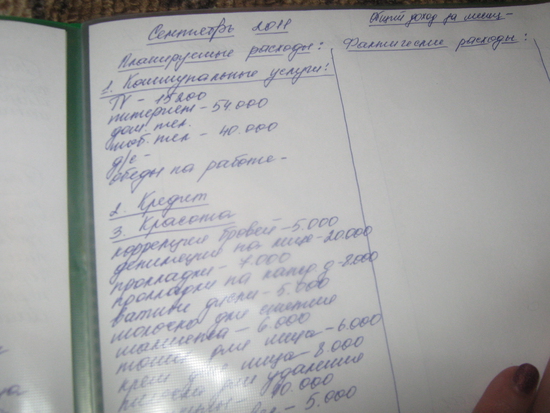 Сентябрь 2011
Общий доход за месяц-
Планируемые расходы:
Фактические расходы:
1. Коммунальные услуги:
TV - 15200
интернет - 54.000
дом. тел.
моб. тел - 40.000
д/с-
обеды на работе-
2. Кредит
3. Красота
коррекция бровей-5.000
депиляция на лице-20.000
прокладки - 7.000
прокладки на кажд. д-2000
ватные диски - 5.000
молочко для снятия
макияжа - 6.000
тоник для лица - 6.000
крем лица - 8.000
для удаления
10.000
- 5.000